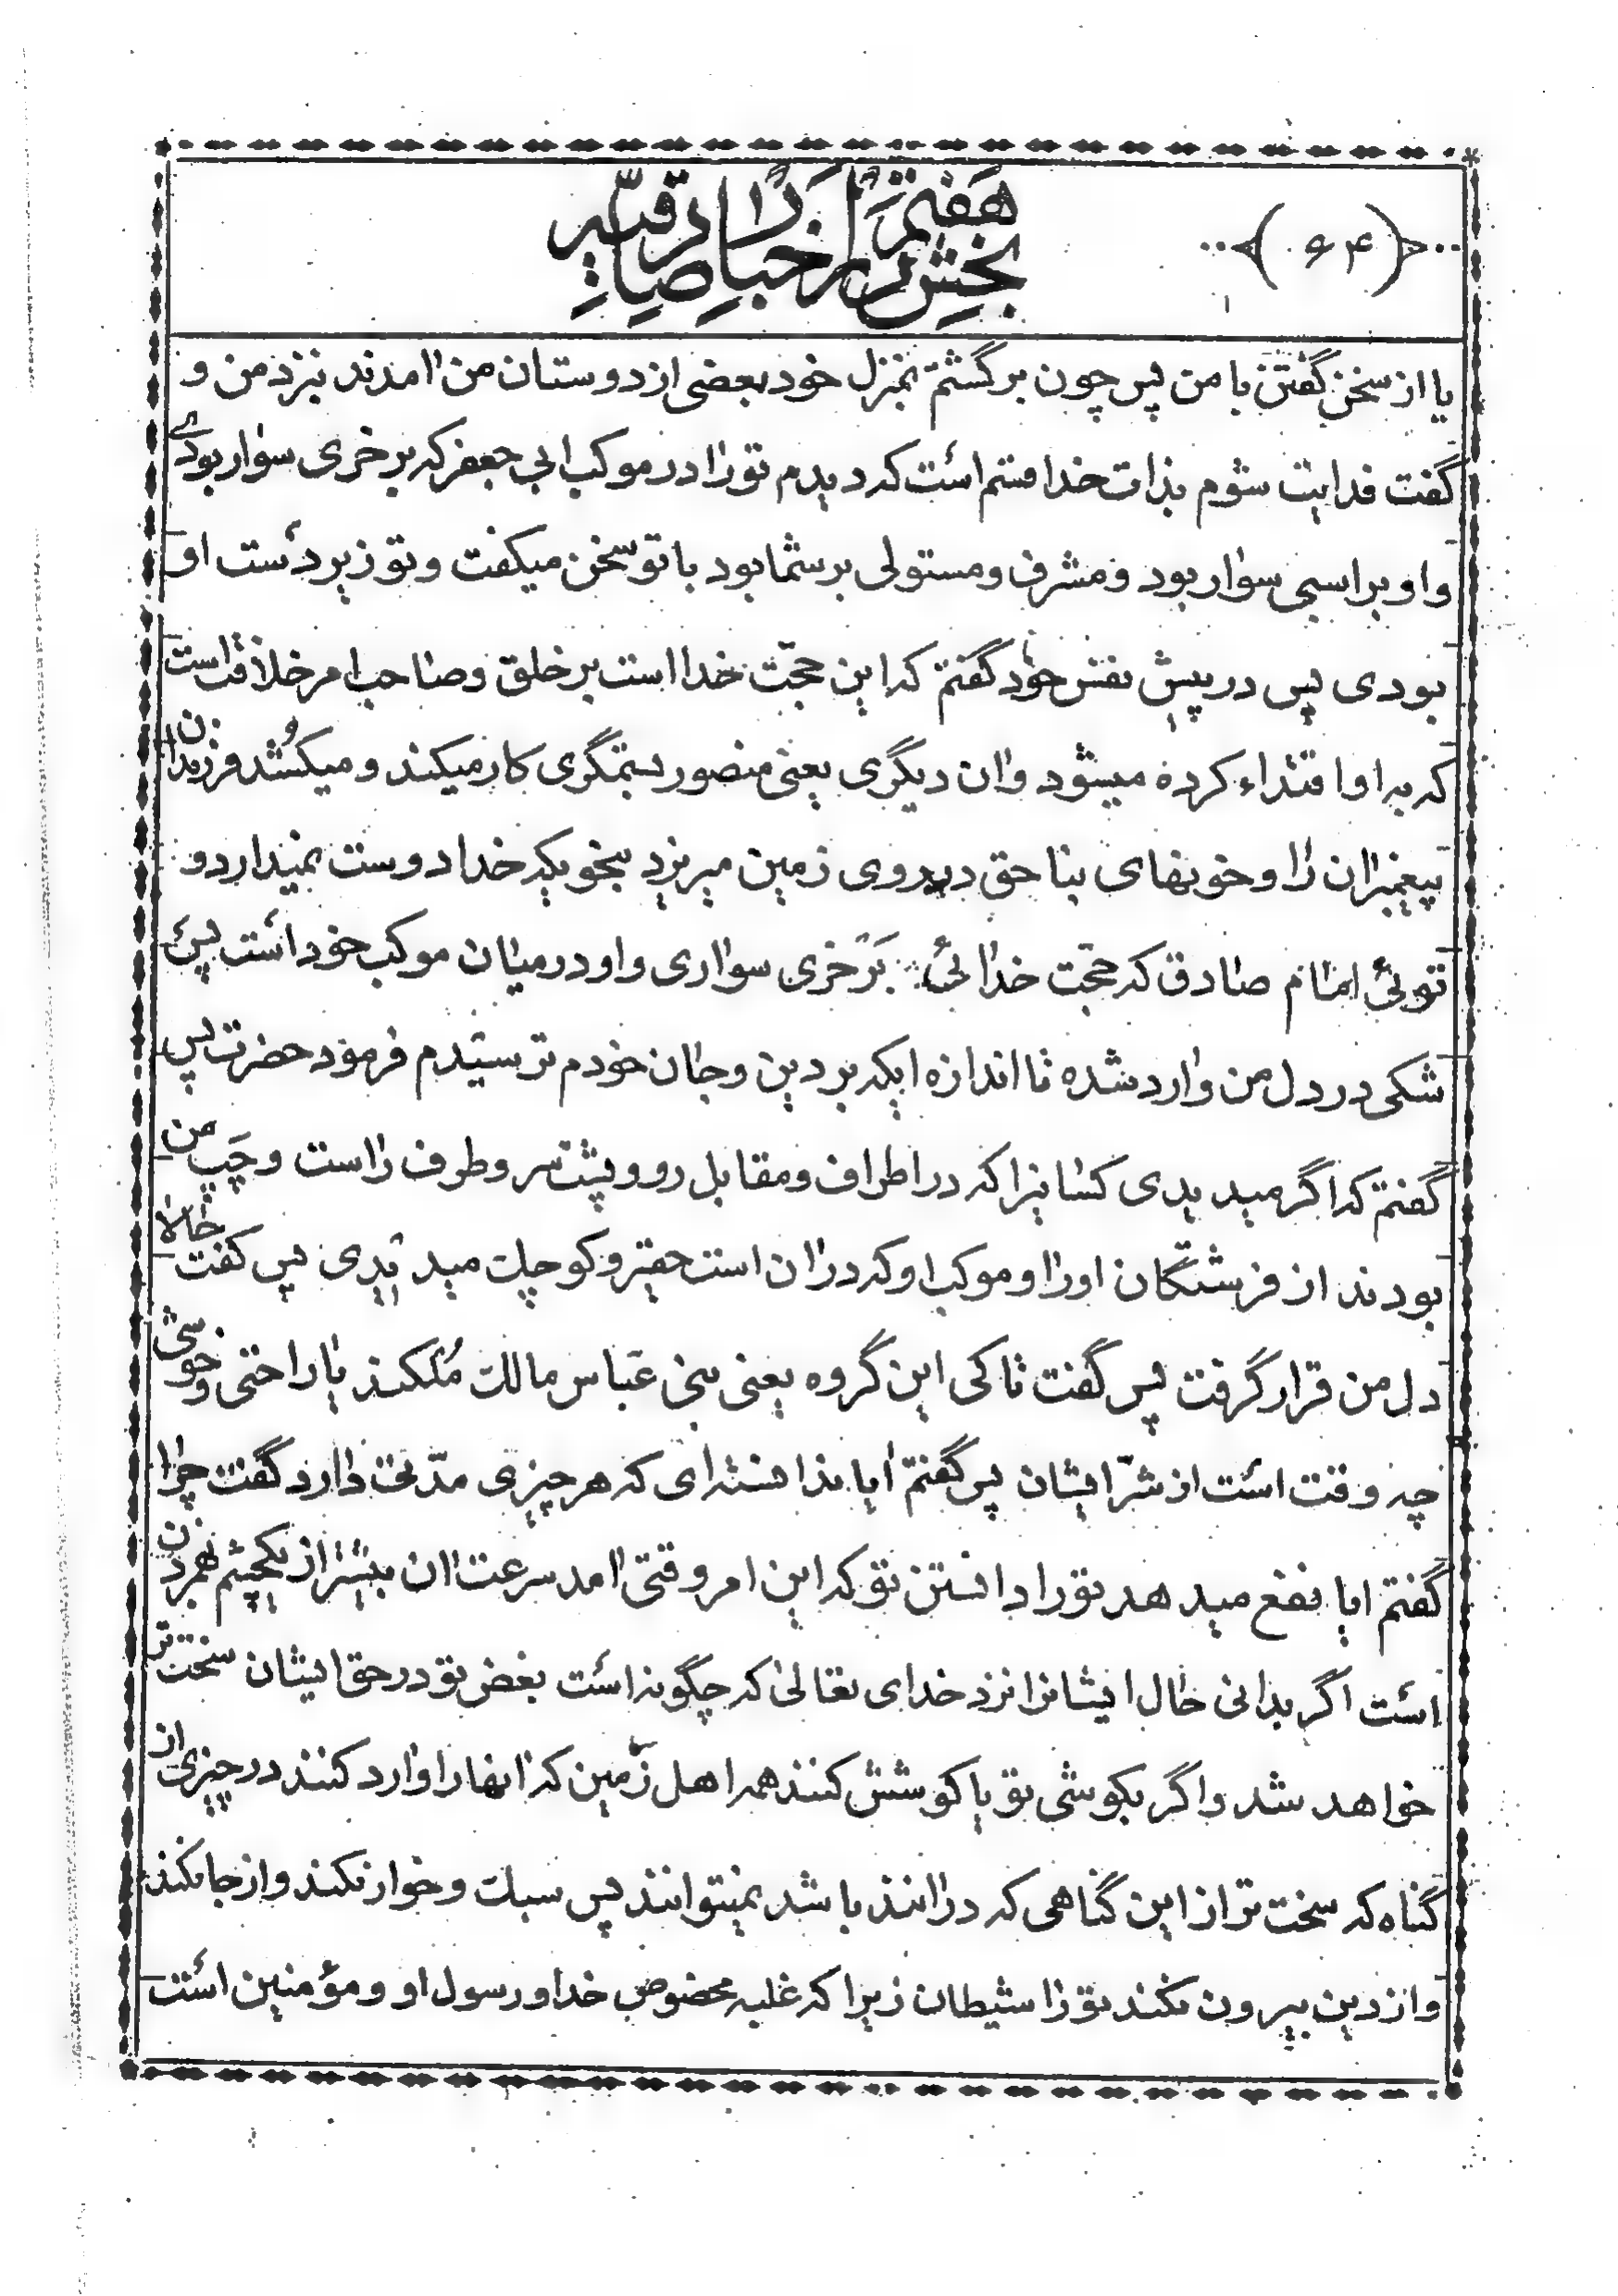 ۶۴
بخش هفتم در اخبار صادقیه
یا از سخن گفتن با من پس چون برگشتم بمنزل خود بعضی از دوستان من آمدند بنزد من و
گفت فدایت شوم بذات خدا قسم است که دیدم تو را در موکب ابی جعفر که بر خری سوار بودی
و او بر اسبی سوار بود و مشرف و مستولی بر شما بود با تو سخن میکفت و تو زیر دست او
بودی پس در پیش نفس خود گفتم که این حجّت خدا است بر خلق و صاحب امر خلافت است
که به او اقتداء کرده میشود و آن دیگری یعنی منصور بستمگری کار میکند و میکُشد فرزندان
پیغمبران را و خونهای بناحق در روی زمین میریزد بنحویکه خدا دوست نمیدارد و
توئی امام صادق که حجّت خدائی بَر خری سواری و او در میان موکب خود است پس
شکی در دل من وارد شده تا اندازه ایکه بر دین و جان خودم ترسیدم فرمود حضرت پس
گفتم که اگر میدیدی کسانیرا که در اطراف و مقابل رو و پشت سر و طرف راست و چَپ من
بودند از فرشتگان او را و موکب او که در آن است حقیر و کوچک میدیدی پس کفت حالا
دل من قرار گرفت پس گفت تا کی این گروه یعنی بنی عبّاس مالک مُلکند یا راحتی و خوشی
چه وقت است از شرّ ایشان پس گفتم آیا ندانسته ای که هر چیزی مدّتی دارد گفت چرا
گفتم ایا نفع میدهد تو را دانستن تو که این امر وقتی آمد سرعت آن بیشتر از یکچشم بهمزدن
است اگر بدانی حال ایشانرا نزد خدای تعالی که چگونه است بغض تو در حق ایشان سخت تر
خواهد شد و اگر بکوشی تو یا کوشش کنند همه اهل زمین که آنها را وارد کنند در چیزی از
گناه که سخت تر از این گناهی که در آنند باشد نمیتوانند پس سبک و خوار نکند و از جا نکند
و از دین بیرون نکند تو را شیطان زیرا که غلبه مخصوص خدا و رسول او و مؤمنین است